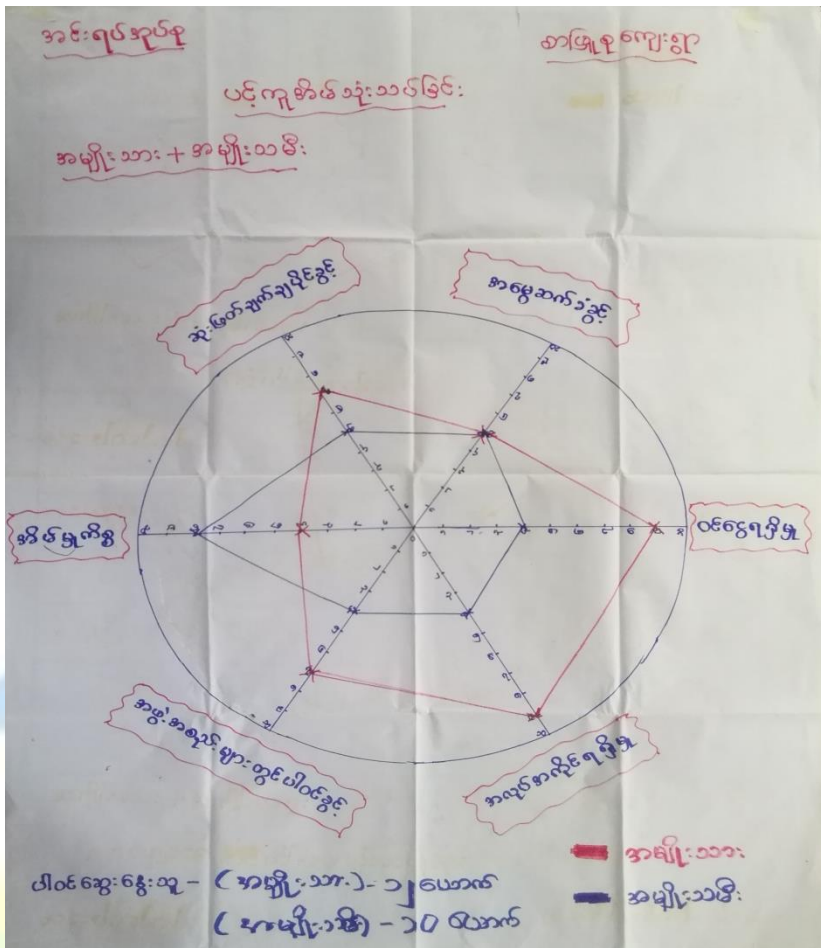 အင်းရပ်အုပ်စု
စာဖြူစုကျေးရွာ
ပင့်ကူအိမ်သုံးသပ်ခြင်း
အမျိုးသား + အမျိုးသမီး
ဆုံးဖြတ်ချက်ချပိုင်ခွင့်
အမွေဆက်ခံခွင့်
အိမ်မှုကိစ္စ
ဝင်ငွေရရှိမှု
အဖွဲ့အစည်းများတွင်ပါဝင်ခွင့်
အလုပ်အကိုင်ရရှိမှု
အမျိုးသား
ပါဝင်ဆွေးနွေးသူ - (အမျိုးသား) - ၁၂ ယောက်
အမျိုးသမီး
(အမျိုးသမီး) - ၁၀ ယောက်